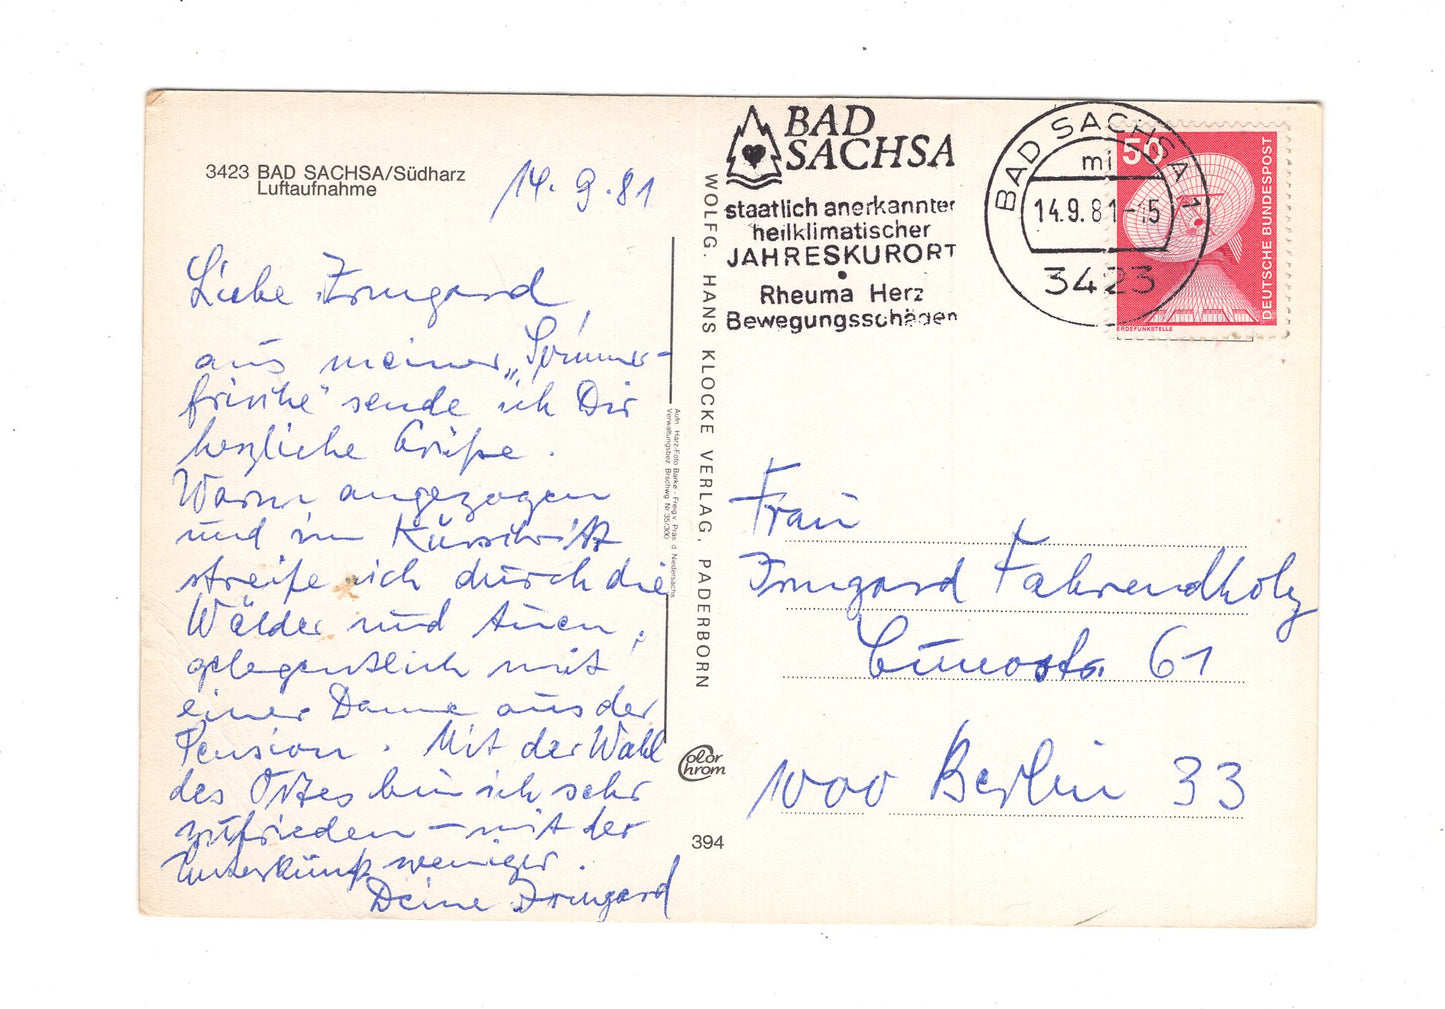 3423 BAD SACHSA/Südharz
Luftaufnahme
14.9.81
Liebe Irmgard,
aus meiner „Sommer-
frische" sende ich Dir
herzliche Grüße.
Warm angezogen
und im Kürschritt
streife ich durch die
Wälder und Auen,
gelegentlich mit
einer Dame aus der
Pension. Mit der Wahl
des Ortes bin ich sehr
zufrieden – mit der
Unterkunft weniger.
Deine Irmgard
Aufn. Harz-Foto Barke - Freig. v. Präs. d. Niedersächs.
Verwaltungsbez. Brschwg Nr. 35/300
WOLFG. HANS KLOCKE VERLAG, PADERBORN
Color
Chrom
394
BAD
SACHSA
staatlich anerkannter
heilklimatischer
JAHRESKURORT
•
Rheuma Herz
Bewegungsschäden
BAD SACHSA 1
mi
14.9.81-15
3423
50
DEUTSCHE BUNDESPOST
ERDEFUNKSTELLE
Frau
Irmgard Fahrendholz
Cunostr. 61
1000 Berlin 33